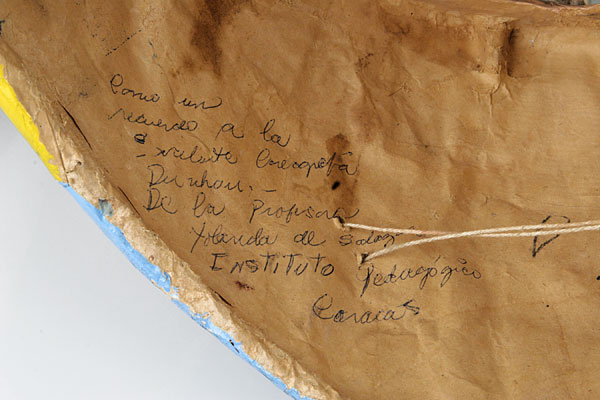 Como un
recuerdo a la
Excelente Coreografa
Dunham.-
De la Profesora
Yolanda de Salas
INSTITUTO Pedagógico
Caracas